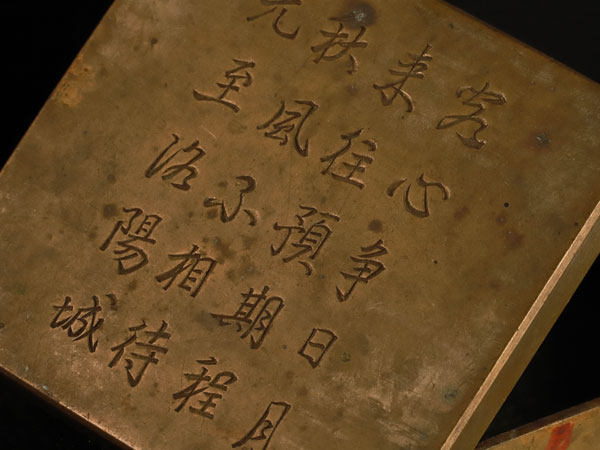 客心争日月
来往預期程
秋風不相待
先至洛陽城